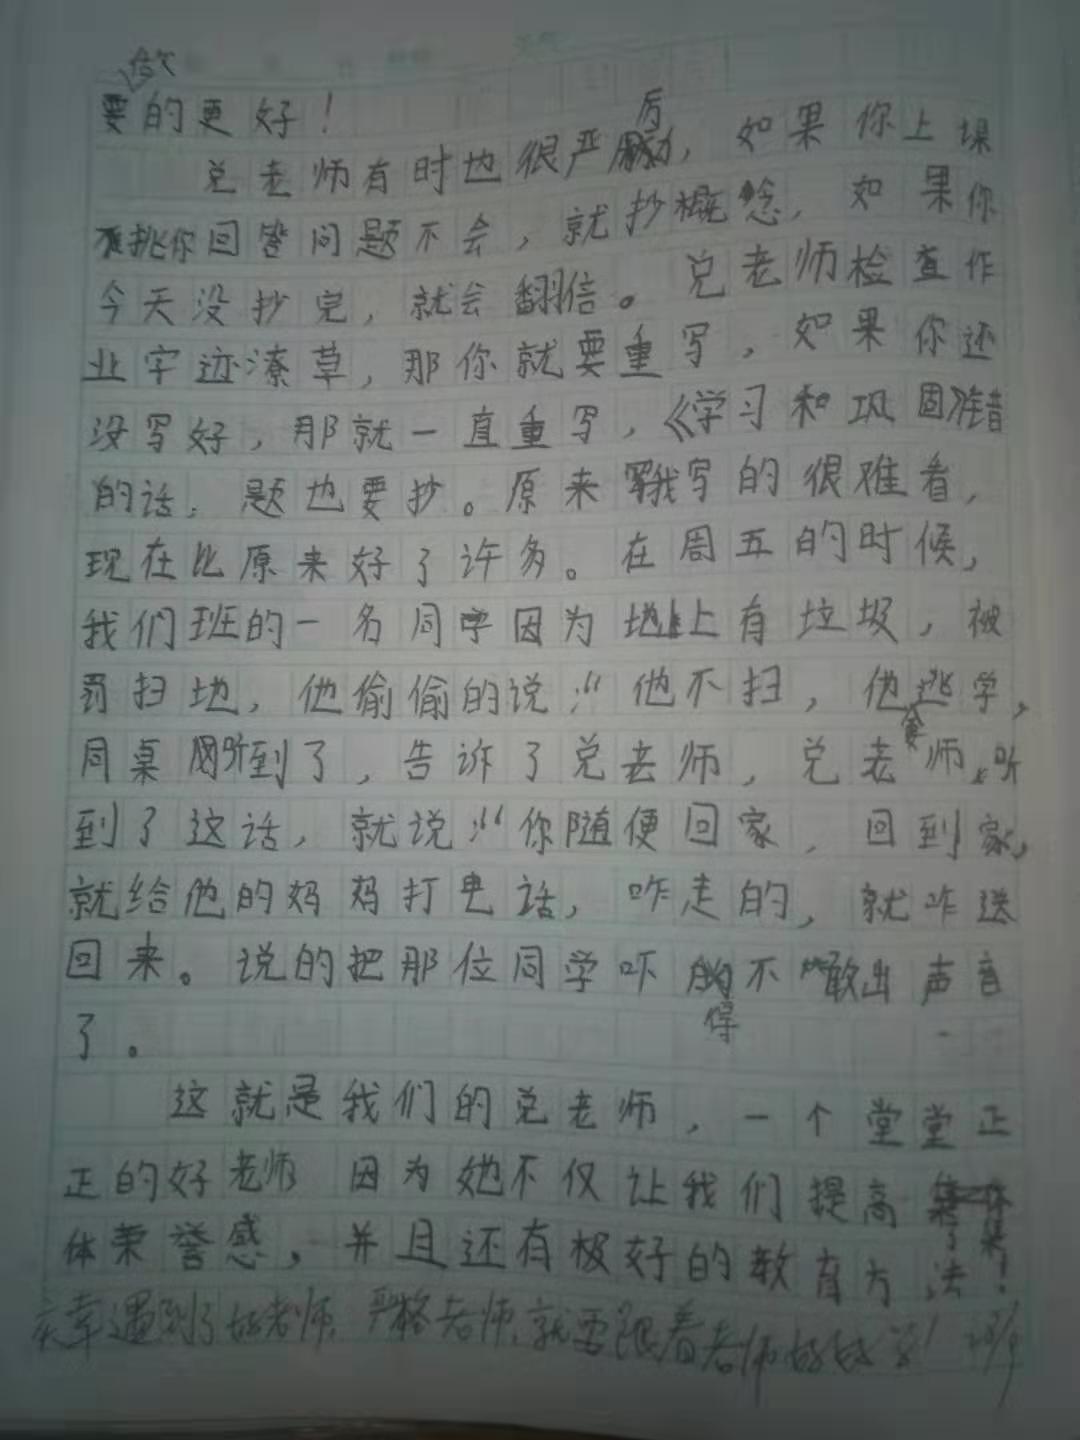 要的更好！
兑老师有时也很严厉，如果你上课
挑你回答问题不会，就抄概念，如果你
今天没抄完，就会翻倍。兑老师检查作
业字迹潦草，那你就要重写，如果你还
没写好，那就一直重写，《学习和巩固》错
的话，题也要抄。原来我写的很难看，
现在比原来好了许多。在周五的时候，
我们班的一名同学因为地上有垃圾，被
罚扫地，他偷偷的说：“他不扫，他要逃学，
同桌听到了，告诉了兑老师，兑老师听
到了这话，就说：“你随便回家，回到家，
就给他的妈妈打电话，咋走的，就咋送
回来。说的把那位同学吓得不敢出声音
了。
这就是我们的兑老师，一个堂堂正
正的好老师 因为她不仅让我们提高了集
体荣誉感，并且还有极好的教育方法！
幸遇到了好老师，严格老师，就要跟着老师好好学！